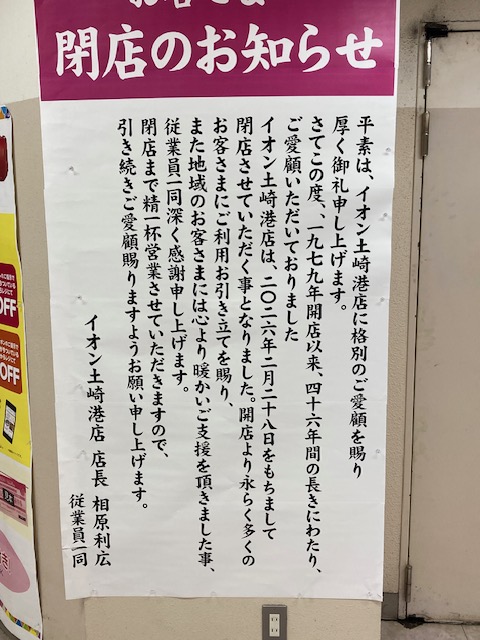 お客さま
閉店のお知らせ
平素は、イオン土崎港店に格別のご愛顧を賜り
厚く御礼申し上げます。
さてこの度、一九七九年開店以来、四十六年間の長きにわたり、
ご愛顧いただいておりました
イオン土崎港店は、二〇二六年二月二十八日をもちまして
閉店させていただく事となりました。開店より永らく多くの
お客さまにご利用お引き立てを賜り、
また地域のお客さまには心より暖かいご支援を頂きました事、
従業員一同深く感謝申し上げます。
閉店まで精一杯営業させていただきますので、
引き続きご愛顧賜りますようお願い申し上げます。
イオン土崎港店 店長 相原利広
従業員一同
OFF
OFF